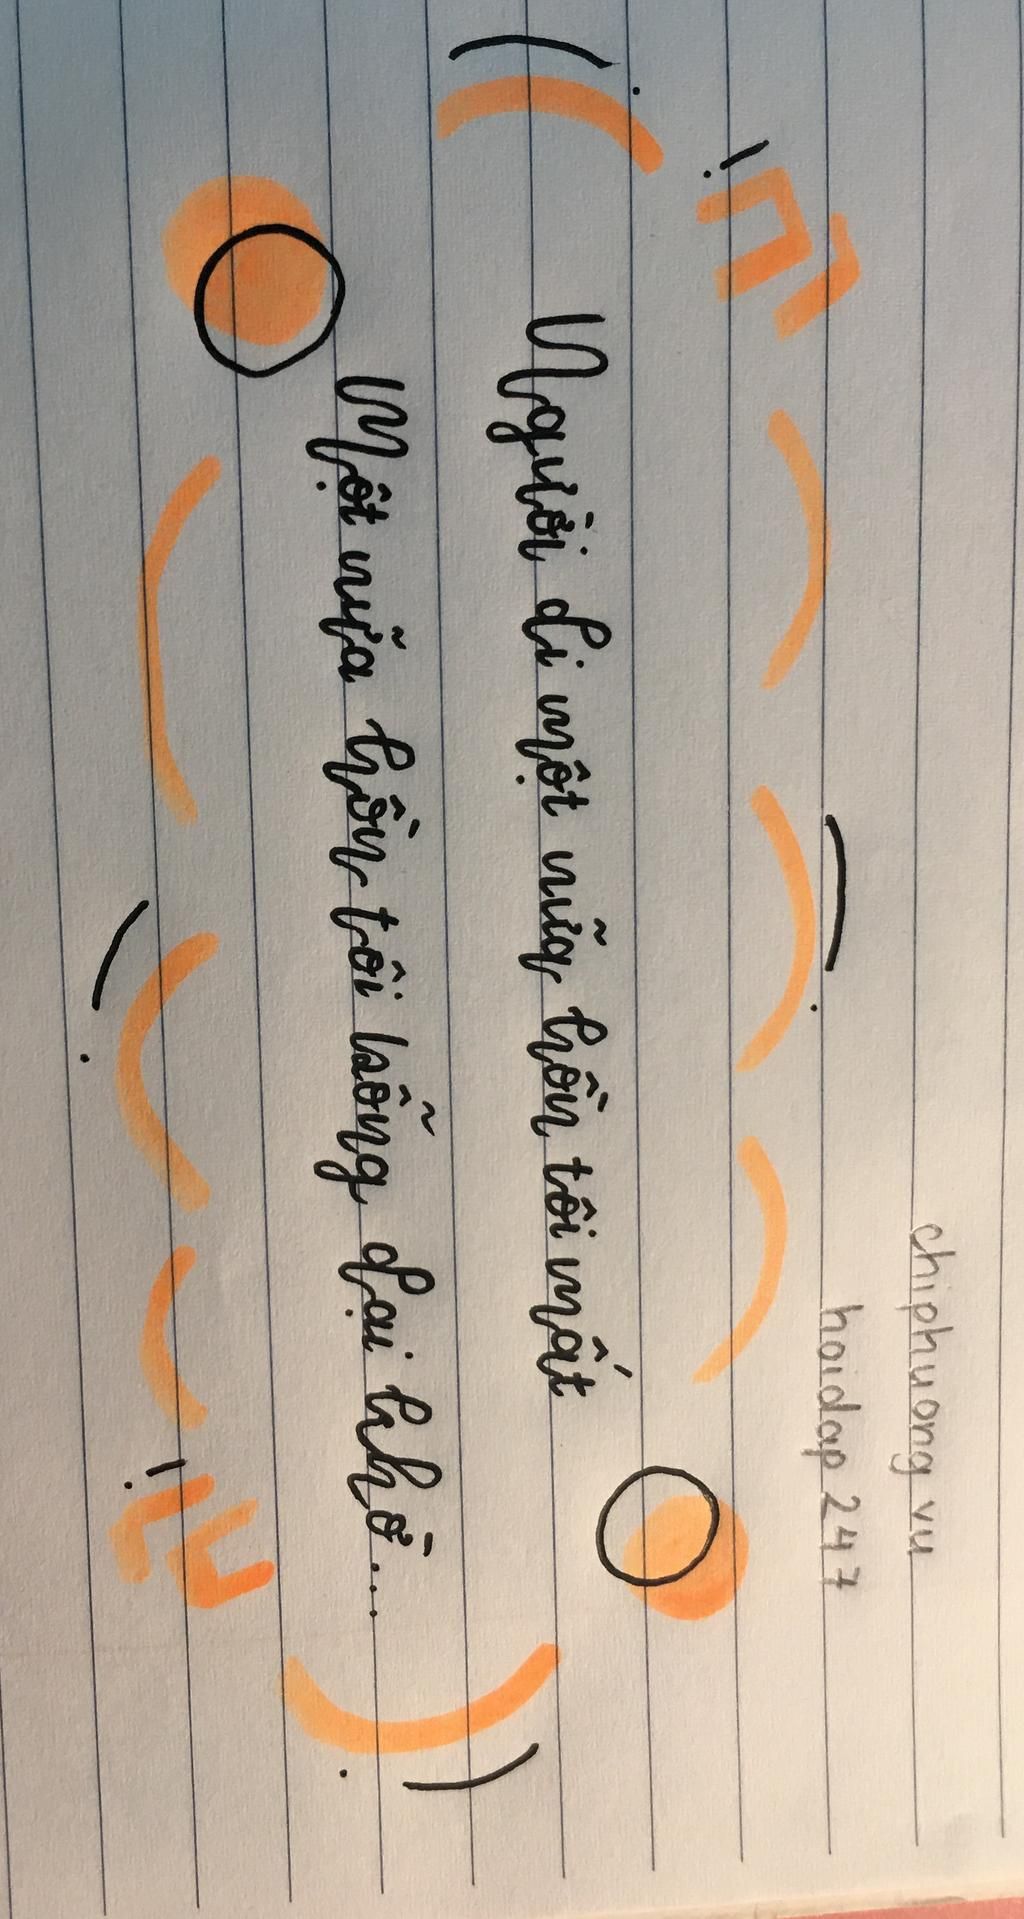 chiphuong vu
hoidap 247
Người đi một nữa hồn tôi mất
Một nữa hồn tôi bỗng dại khờ...